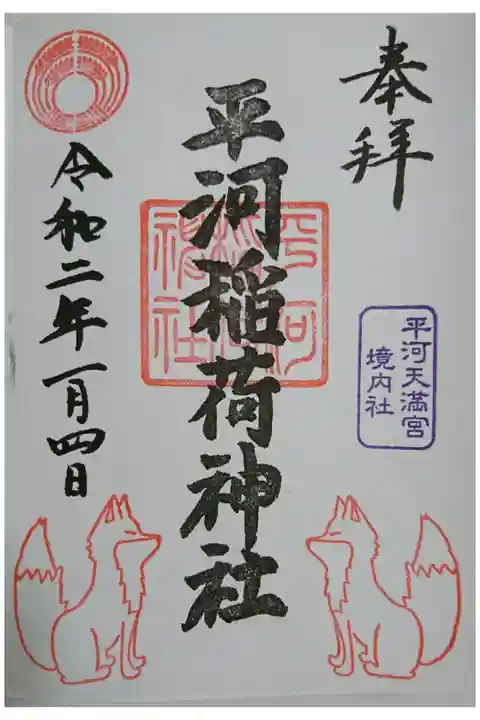 奉拝
平河天満宮
境内社
平河稲荷神社
平河
稲荷
神社
令和二年一月四日